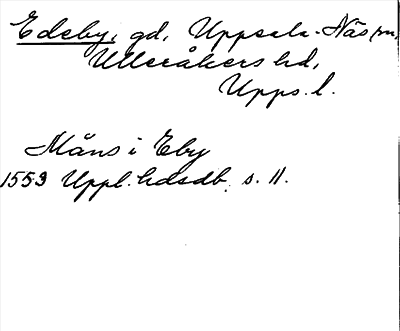 Edeby, gd, Uppsala-Näs sn,
Ulleråkers hd,
Upps. l.
Måns i Eby
1553 Uppl. hdsdb, s. 11.